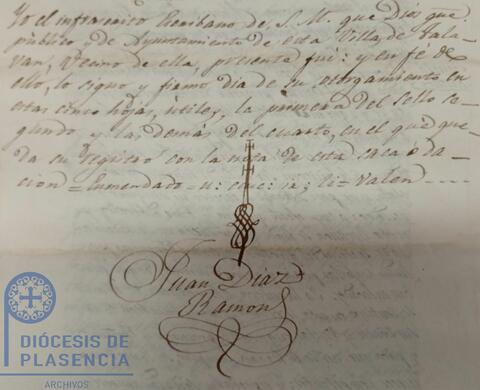 Yo el infraescrito Escribano de S. M. que Dios gue
público y de Ayuntamiento de esta Villa de Tala-
van, Vecino de ella, presente fui: y en fé de
ello, lo signo y firmo dia de su otorgamiento en
estas cinco hojas, útiles, la primera del sello se-
gundo y las demas del cuarto, en el que que-
da su registro con la nota de esta saca o da-
cion = Enmendado =
Valen
Juan Diaz
Ramon
DIÓCESIS DE
PLASENCIA
ARCHIVOS